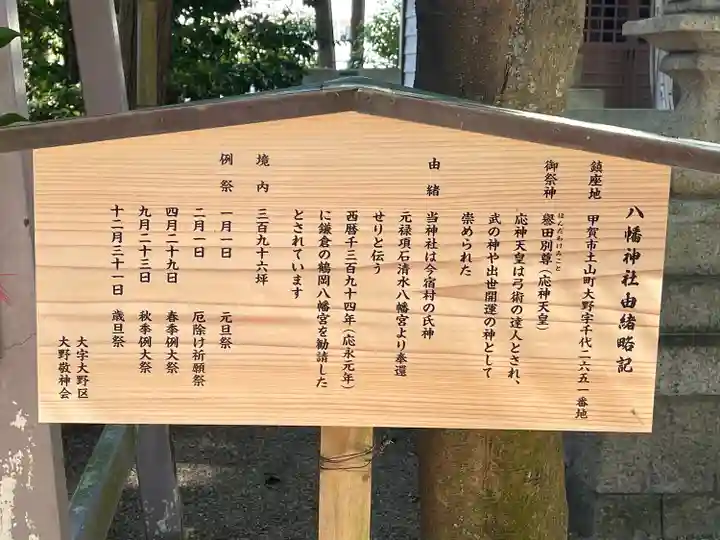 八幡神社由緒略記
鎮座地 甲賀市土山町大野字千代二六五一番地
御祭神 誉田別尊(応神天皇)
ほんだわけのみこと
応神天皇は弓術の達人とされ、
武の神や出世開運の神として
崇められた
由緒 当神社は今宿村の氏神
元禄項石清水八幡宮より奉還
せりと伝う
西暦千三百九十四年(応永元年)
に鎌倉の鶴岡八幡宮を勧請した
とされています
境内 三百九十六坪
例祭 一月一日 元旦祭
二月一日 厄除け祈願祭
四月二十九日 春季例大祭
九月二十三日 秋季例大祭
十二月三十一日 歳旦祭
大字大野区
大野敬神会